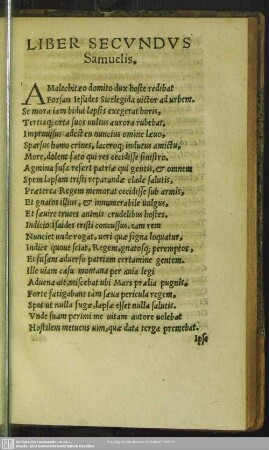 LIBER SECVNDVS
Samuelis.
AMalechitæo domito dux hoste redibat
Forsan Iesides Sicelegida uictor ad urbem.
Se mora iam bidui lapsis exegerat horis,
Tertiaq; certa suos uultus aurora rubebat,
Improuisus adest en nuncius omine læuo,
Sparsus humo crines, laceroq; indutus amictu,
More, dolent fato qui res cecidisse sinistro.
Agmina fusa refert patriæ qui gentis, & omnem
Spem lapsam tristi reparandæ clade salutis,
Præterea Regem memorat cecidisse sub armis,
Et gnatos illius, & innumerabile uulgus,
Et sæuire truces animis crudelibus hostes.
Indicio Isaides tristi concussus, eam rem
Nunciet unde rogat, ueri quæ signa loquatur,
Indicet quoue sciat, Regem, gnatosq; peremptos,
Et fusam aduerso patriam certamine gentem.
Ille uiam casu montana per auia legi
Aduena ait, miscebat ubi Mars prælia pugnis.
Forte fatigabant iam sæua pericula regem,
Spes ut nulla fugæ, lapsæ esset nulla salutis.
Vnde suam perimi me uitam autore uolebat
Hostilem metuens uim, quæ data terga premebat.
Ipse